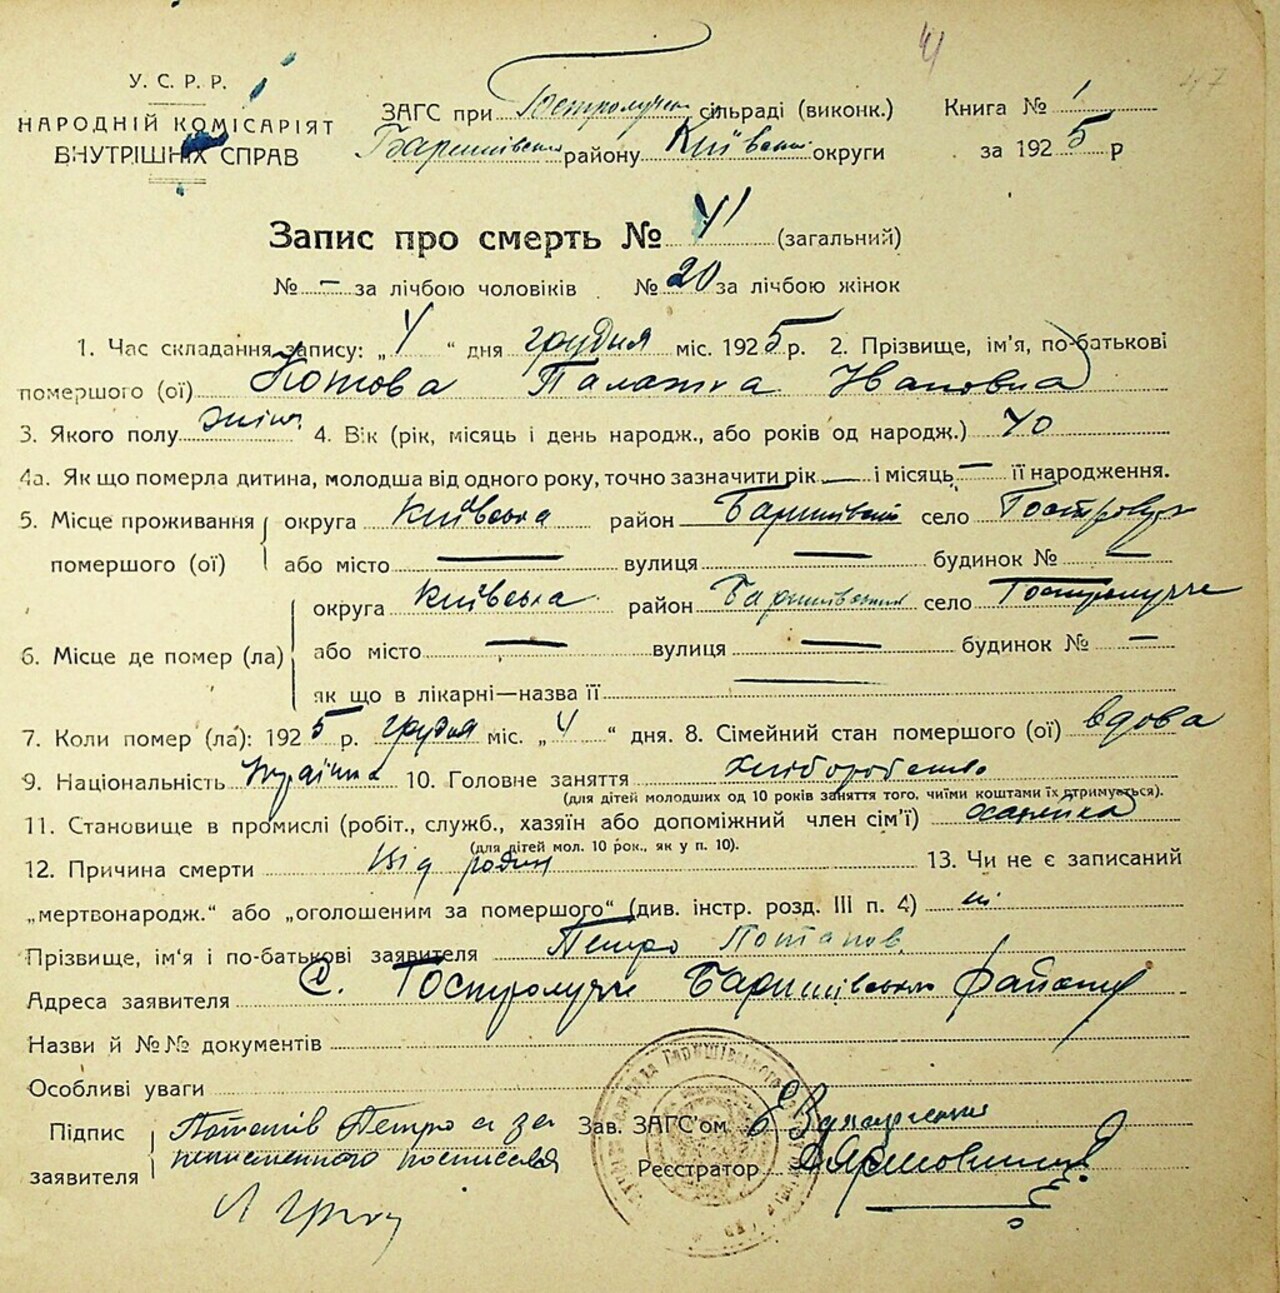 41
47
У. С. Р. Р.
НАРОДНІЙ КОМІСАРІЯТ
ВНУТРІШНІХ СПРАВ
ЗАГС при Гостролучен сільраді (виконк.) Книга № 1
Баришівськ району Київськ округи за 1925 р
Запис про смерть № 41 (загальний)
№ — за лічбою чоловіків № 20 за лічбою жінок
1. Час складання запису: „ 4 “ дня грудня міс. 1925 р. 2. Прізвище, ім'я, по-батькові
помершого (ої) Потова Палажка Івановна
3. Якого полу жіноч. 4. Вік (рік, місяць і день народж., або років од народж.) 40
4а. Як що померла дитина, молодша від одного року, точно зазначити рік — і місяць — її народження.
5. Місце проживання помершого (ої) округа Київська район Баришівськ село Гостролуч
або місто — вулиця — будинок № —
6. Місце де помер (ла) округа Київська район Баришівський село Гостролуччє
або місто — вулиця — будинок № —
як що в лікарні—назва її —
7. Коли помер (ла): 1925 р. грудня міс. „ 4 “ дня. 8. Сімейний стан помершого (ої) вдова
9. Національність Українка 10. Головне заняття хліборобство
(для дітей молодших од 10 років заняття того, чиїми коштами їх втримується).
11. Становище в промислі (робіт., служб., хазяїн або допоміжний член сім'ї) хазяйка
(для дітей мол. 10 рок., як у п. 10).
12. Причина смерти від родин 13. Чи не є записаний
„мертвонародж.“ або „оголошеним за помершого“ (див. інстр. розд. III п. 4) ні
Прізвище, ім'я і по-батькові заявителя Петро Потапов
Адреса заявителя С. Гостролуччє Баришівського району
Назви й №№ документів
Особливі уваги
Підпис заявителя Потапів Петро а за
неписменного росписався
Зав. ЗАГС'ом
Реєстратор